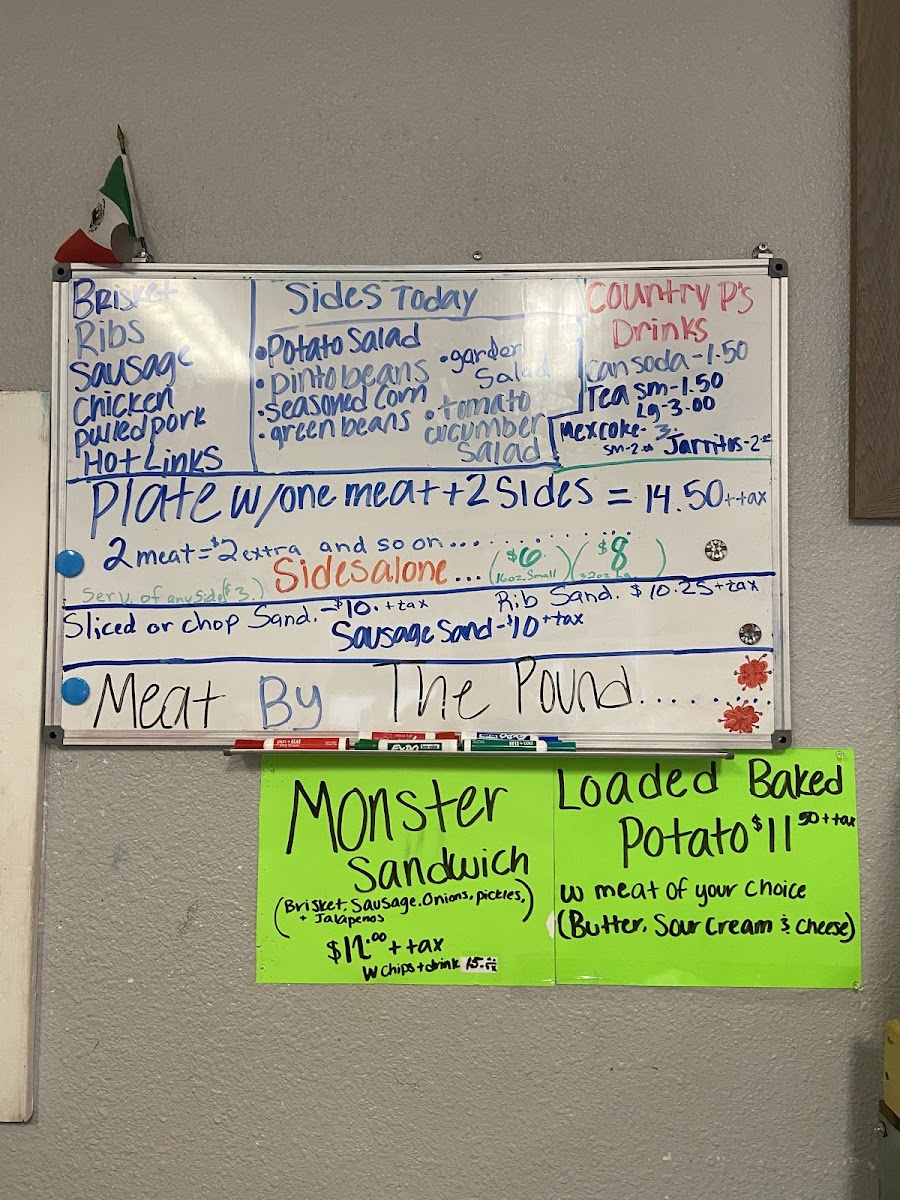 Brisket
Ribs
Sausage
Chicken
pulled pork
Hot Links
Sides Today
•Potato Salad
•pinto beans
•seasoned corn
•green beans
•garden
Salad
•tomato
cucumber
Salad
Country P's
Drinks
Can soda-1.50
Tea sm-1.50
Lg-3.00
Mexcoke-3.
sm-2.00 Jarritos-2.00
Plate w/one meat+2 sides = 14.50++ax
2 meat=$2 extra and so on...
Sides alone... ($6 16oz. Small) ($8 32oz Lg.)
Serv. of any side($3.)
Sliced or chop Sand.-$10.++ax
Rib Sand. $10.25++ax
Sausage Sand-$10++ax
Meat By The Pound......
EXPO
Monster
Sandwich
(Brisket, Sausage, Onions, pickles,
+ Jalapenos)
++ax
w Chips+drink 15.
Loaded Baked
Potato $11 50++ax
w meat of your choice
(Butter, Sour Cream & Cheese)